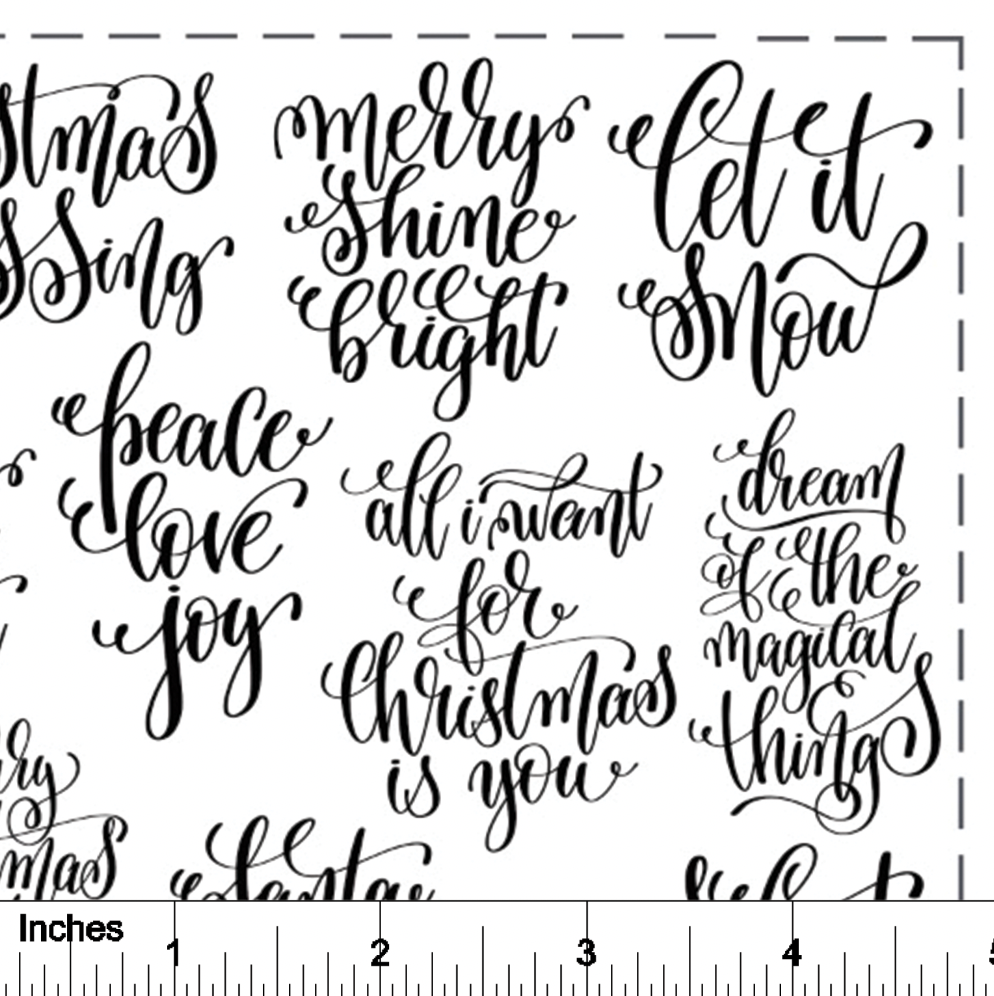 merry
shine
bright
let it
snow
sing
peace
love
joy
all i want
for
Christmas
is you
dream
of the
magical
things
Inches
1 2 3 4